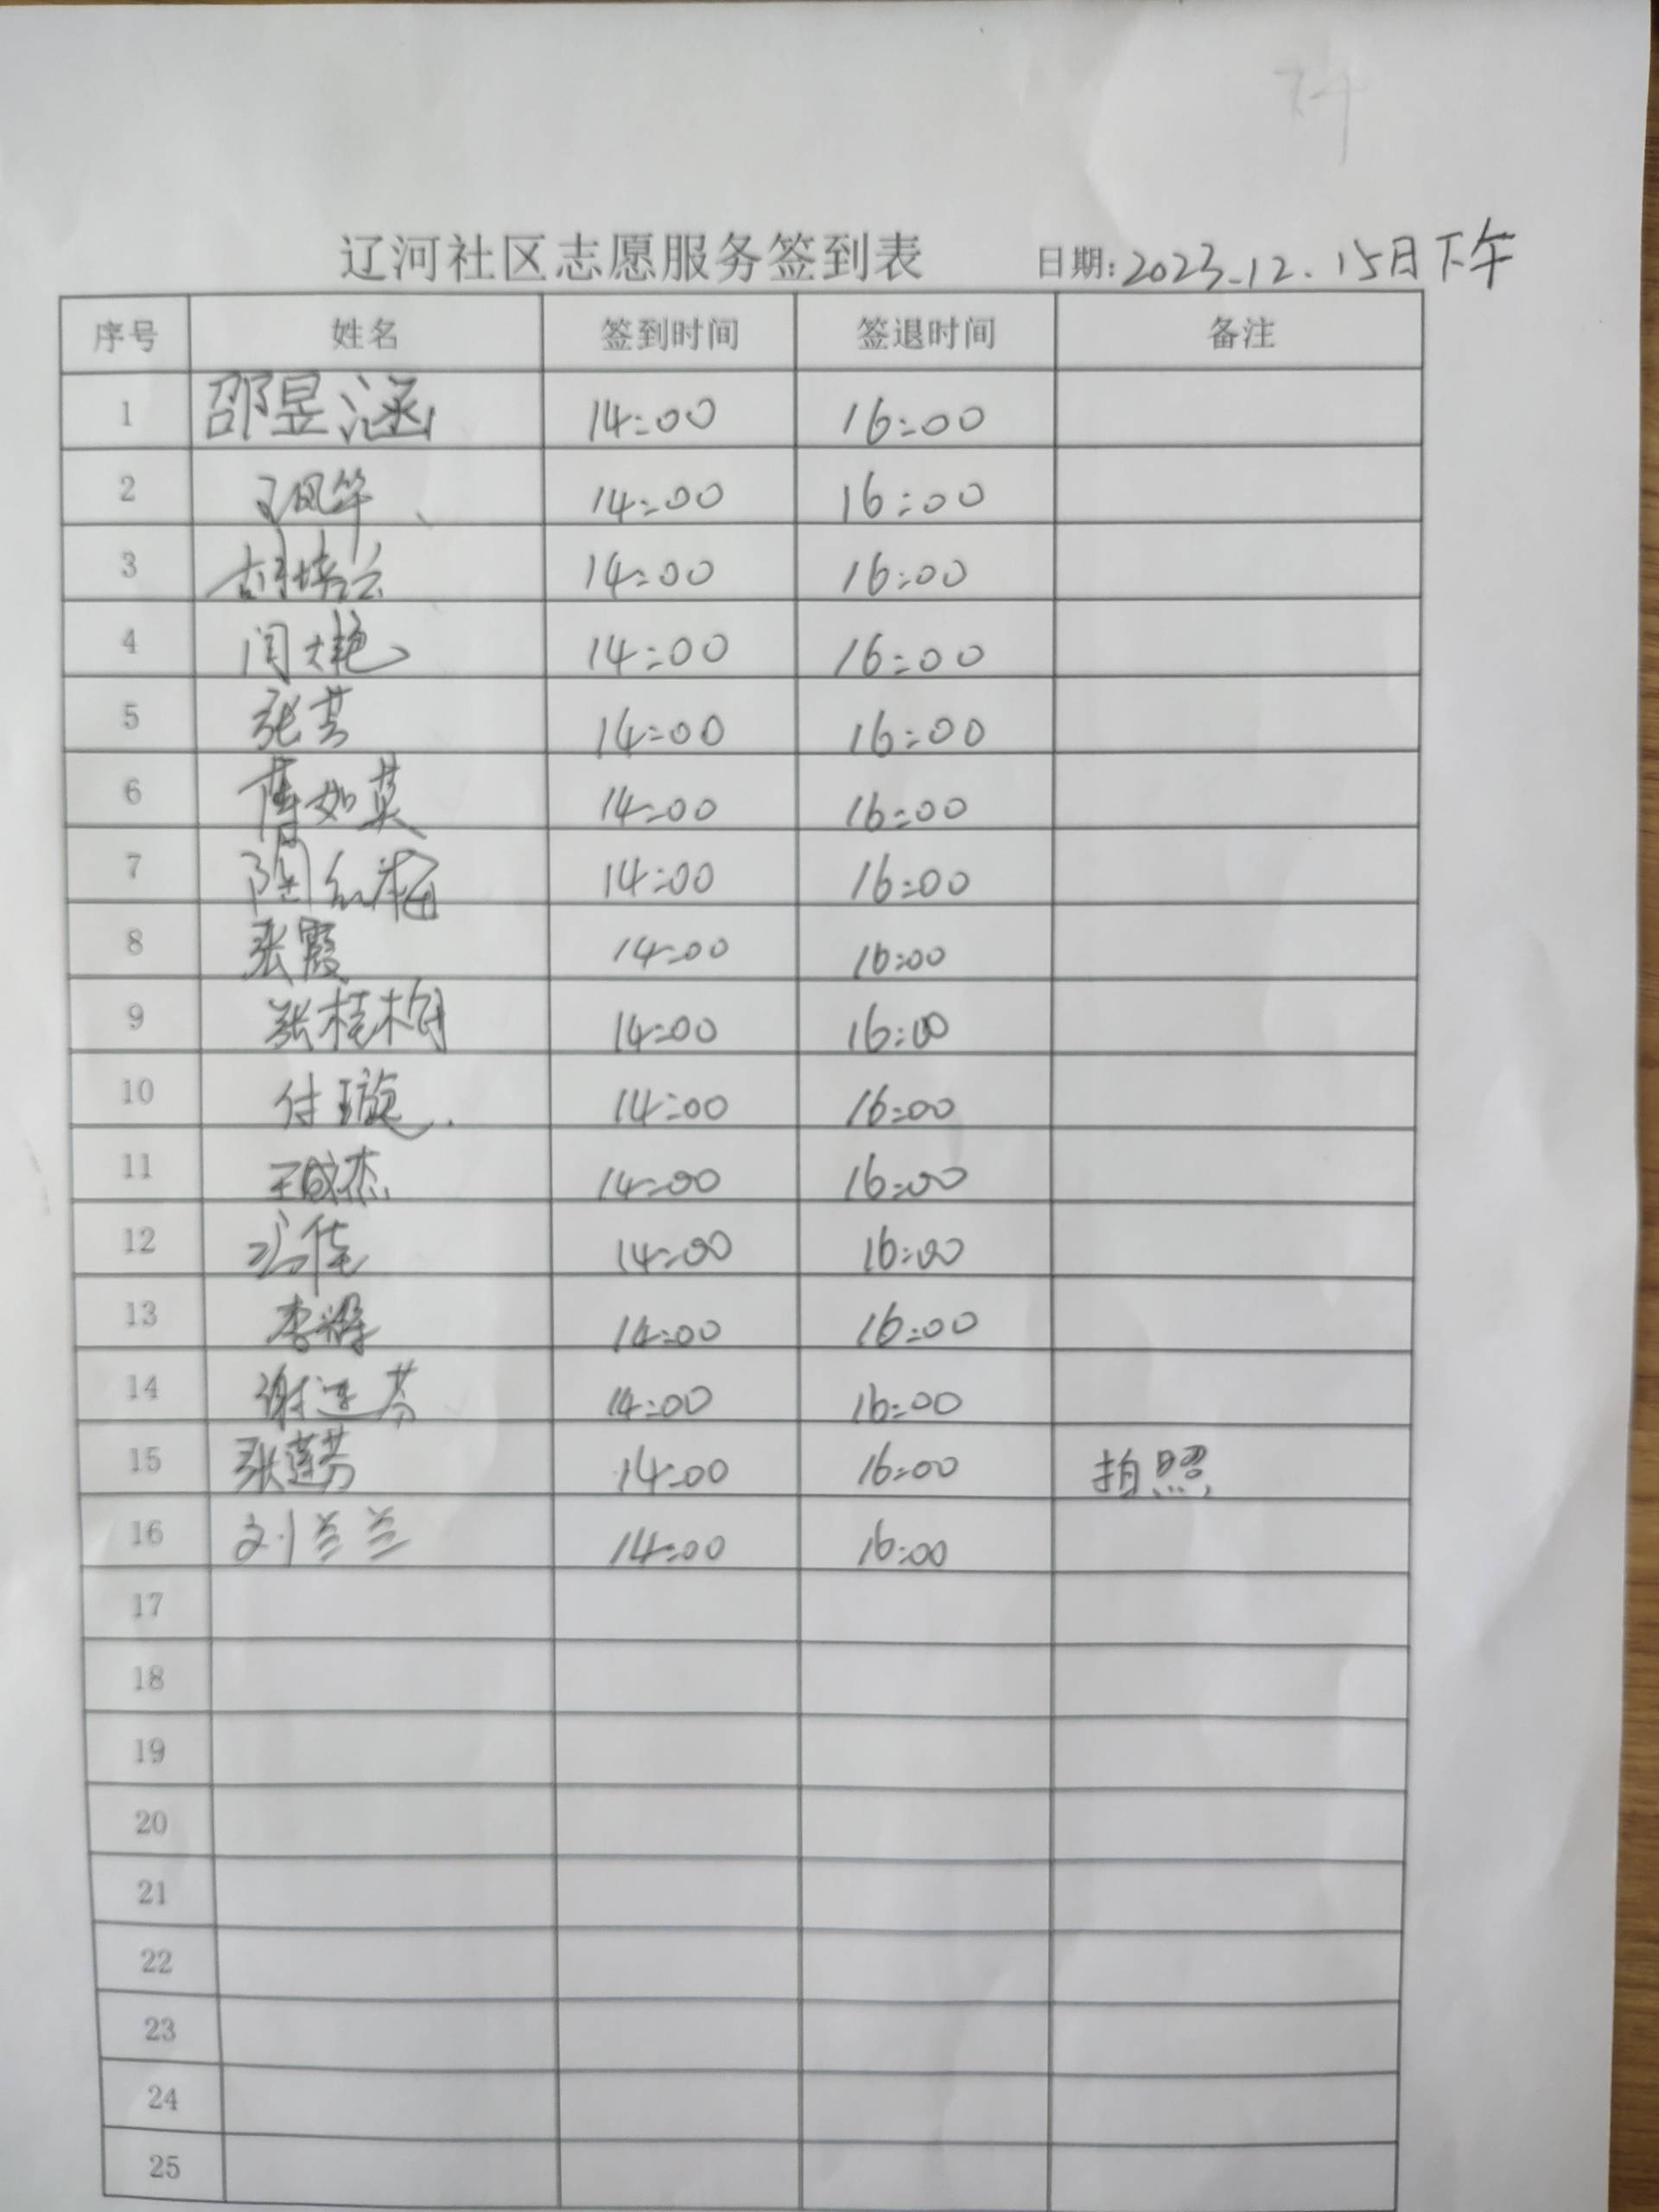 辽河社区志愿服务签到表 日期:2023.12.15日下午
序号 姓名 签到时间 签退时间 备注
1 邵昱涵 14:00 16:00
2 王凤华 14:00 16:00
3 胡培云 14:00 16:00
4 闫艳 14:00 16:00
5 张芸 14:00 16:00
6 如英 14:00 16:00
7 陶红梅 14:00 16:00
8 张霞 14:00 16:00
9 张桂树 14:00 16:00
10 付璇 14:00 16:00
11 王成杰 14:00 16:00
12 冯佳 14:00 16:00
13 李 14:00 16:00
14 谢连芬 14:00 16:00
15 张莲芬 14:00 16:00 拍照
16 刘兰兰 14:00 16:00
17
18
19
20
21
22
23
24
25